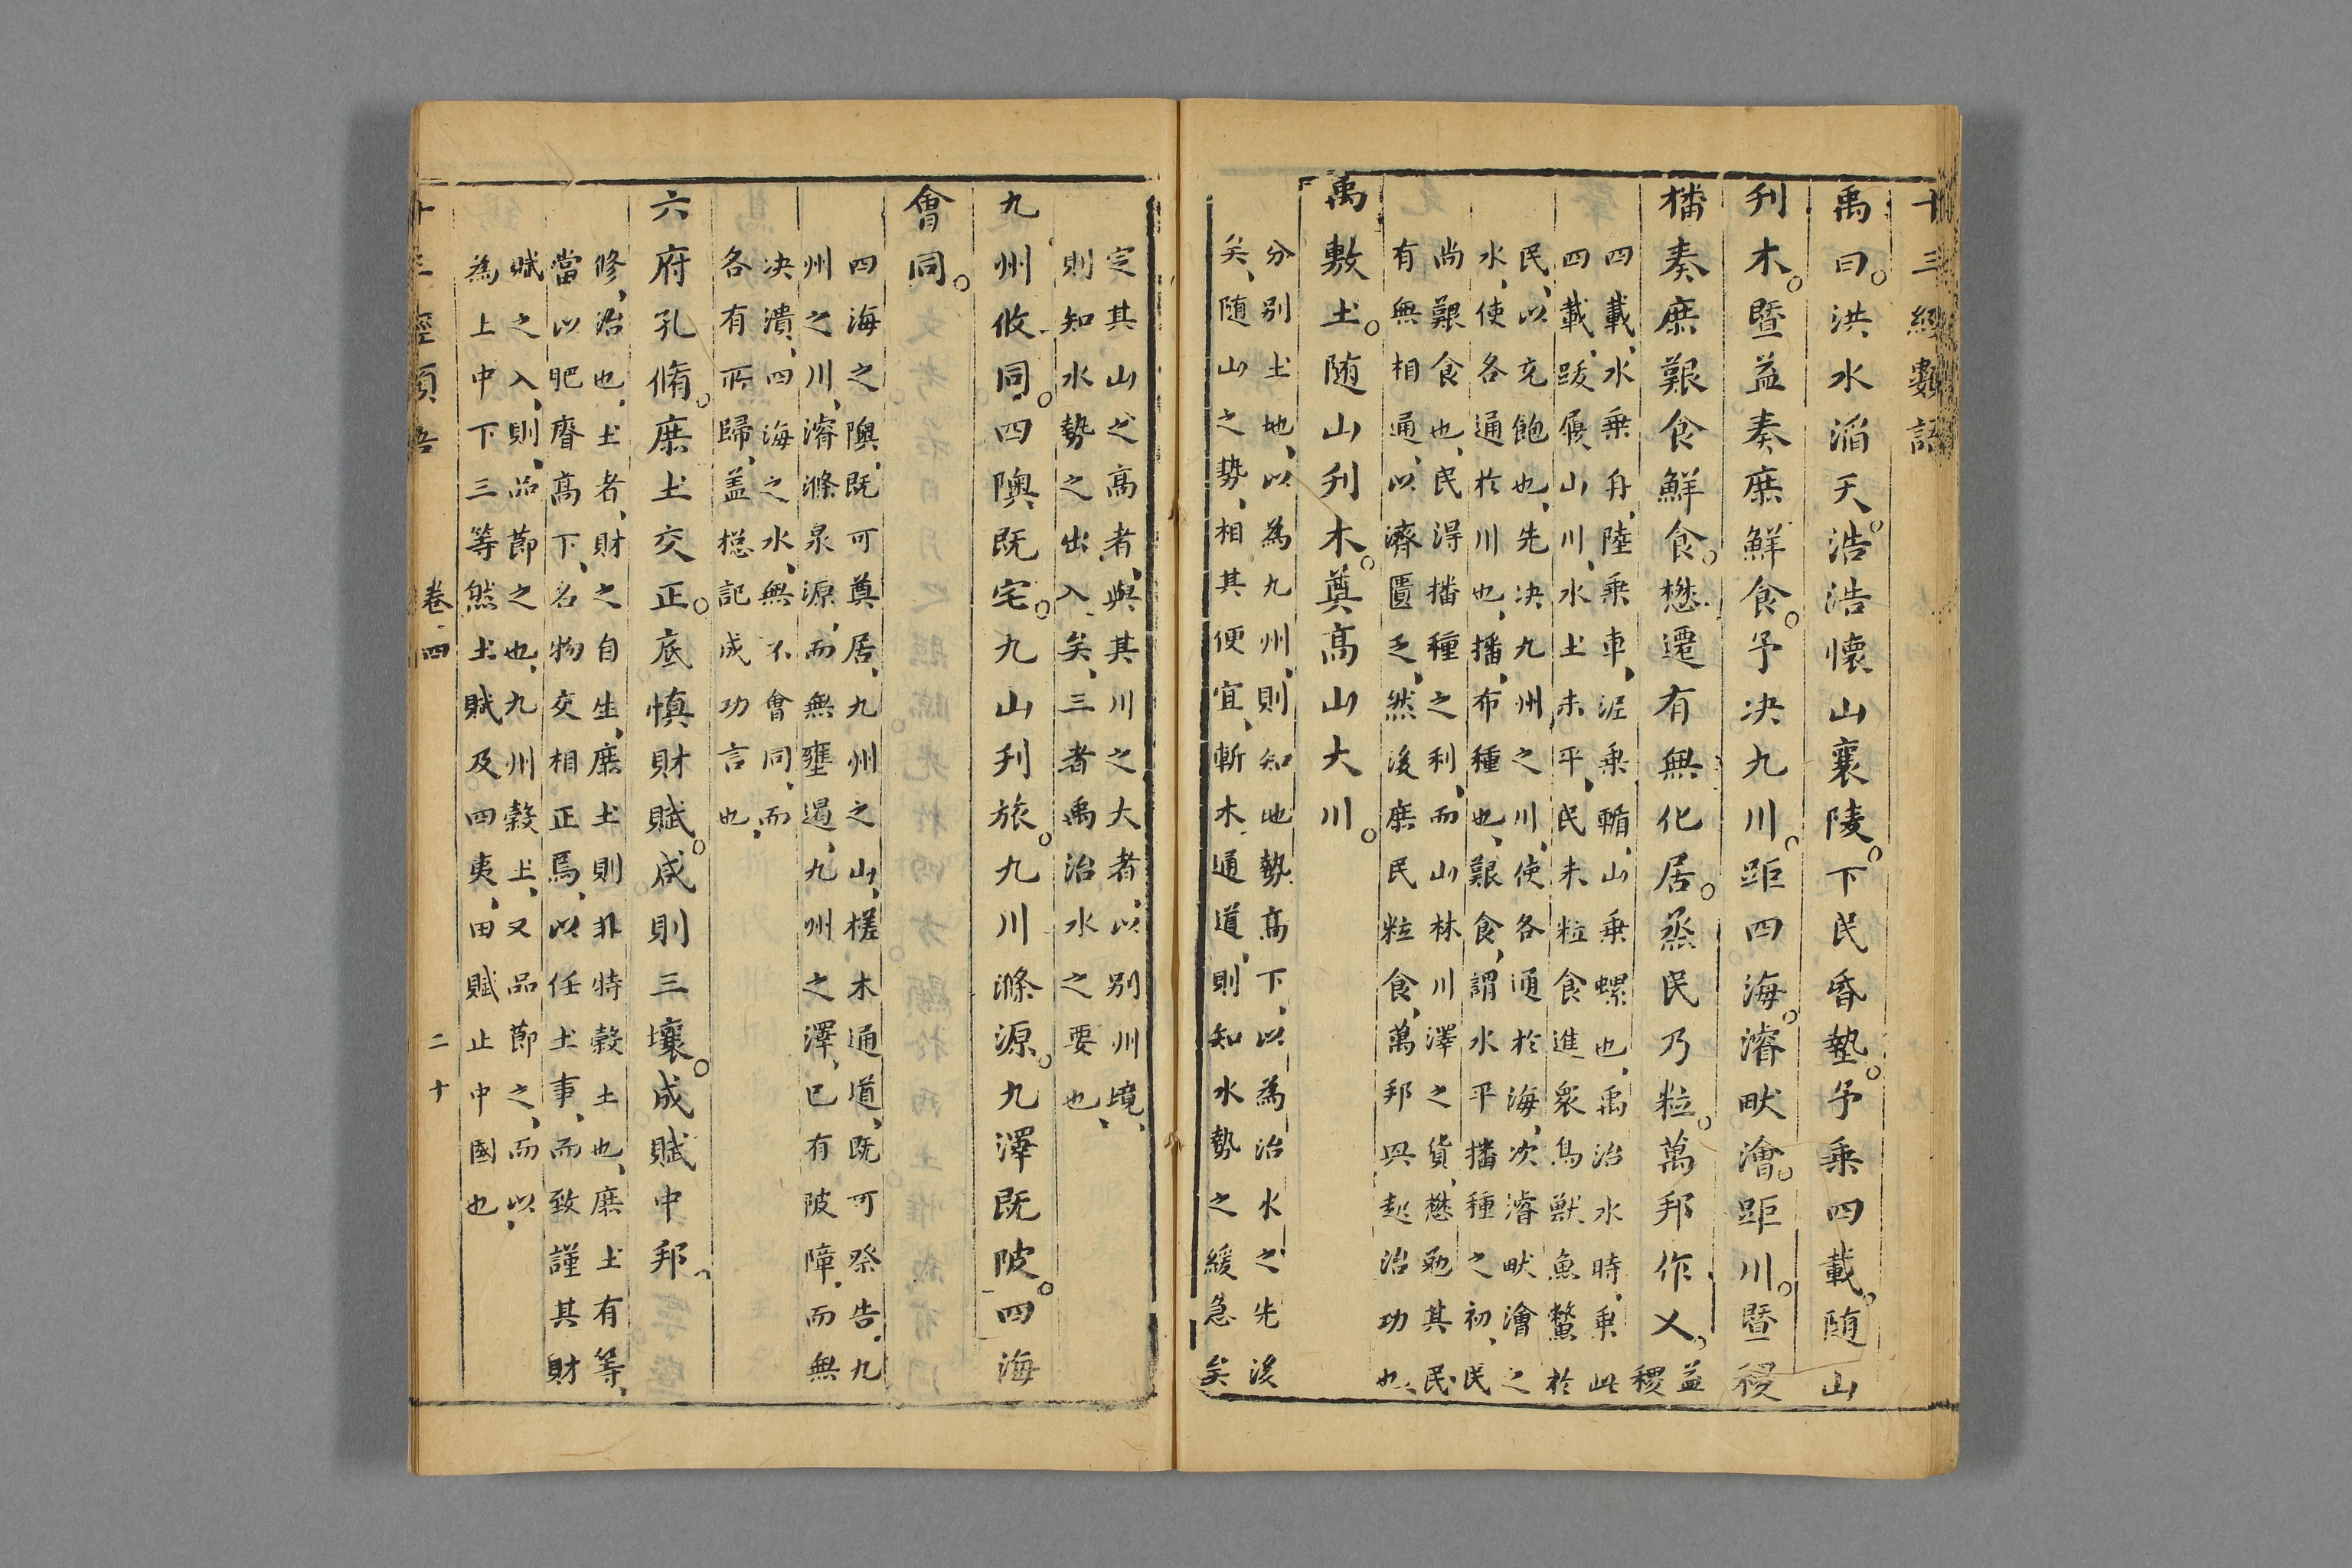 十三經類語
禹曰洪水滔天浩浩懷山襄陵下民昏墊予乘四載随山
刋木暨益奏庶鮮食予决九川距四海濬畎澮距川暨稷
播奏庶艱食鮮食懋遷有無化居烝民乃粒萬邦作乂益稷
四載水乗舟陸乗車泥乗輴山乗樏也禹治水時乗此
四載跋履山川水土未平民未粒食進衆鳥獸魚鱉於
民以充飽也先决九州之川使各通於海次濬畎澮之
水使各通於川也播布種也艱食謂水平播種之初民
尚艱食也民得播種之利而山林川澤之貨懋勉其民
有無相通以濟匱乏然後庶民粒食萬邦興起治功也
禹敷土随山刋木奠高山大川
分别土地以為九州則知地勢高下以為治水之先後
矣随山之勢相其便宜斬木通道則知水勢之緩急矣
定其山之高者與其川之大者以别州境
則知水勢之出入矣三者禹治水之要也
九州攸同四隩既宅九山刋旅九川滌源九澤既陂四海
會同
四海之隩既可奠居九州之山槎木通道既可祭告九
州之川濬滌泉源而無壅遏九州之澤已有陂障而無
决潰四海之水無不會同而
各有所歸盖總記成功言也
六府孔脩庶土交正底慎財賦咸則三壤成賦中邦
修治也土者財之自生庶土則非特穀土也庶土有等
當以肥瘠高下名物交相正焉以任土事而致謹其財
賦之入則品節之也九州穀土又品節之而以
為上中下三等然土賦及四夷田賦止中國也
十三經類語 卷四 二十